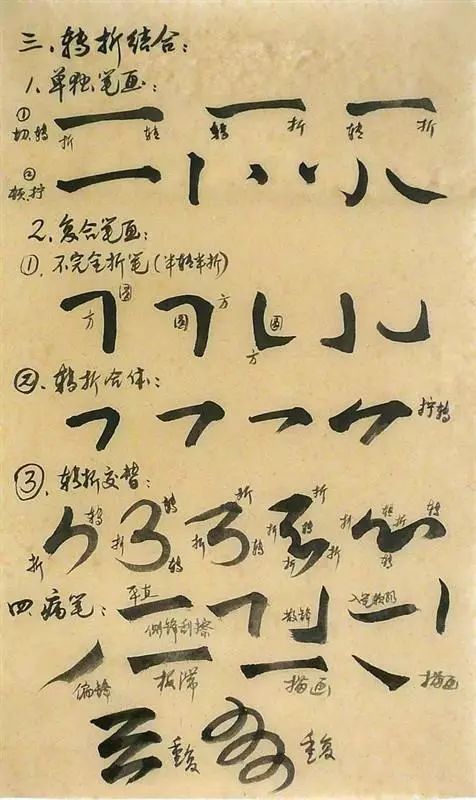 三、转折结合：
1.单独笔画：
①切.转 折 转 转 折 转 折
②顿.拧
2.复合笔画：
①.不完全折笔（半转半折）
方 圆 圆 方 方 圆
②.转折合体：
拧转
③.转折交替：
折 转 折 转 转 折 折 转 折 折 转 折 折 折 转 折 转 转
四.病笔：
平直 侧锋刮擦 散锋
偏锋 板滞 描画 描画
重复 重复